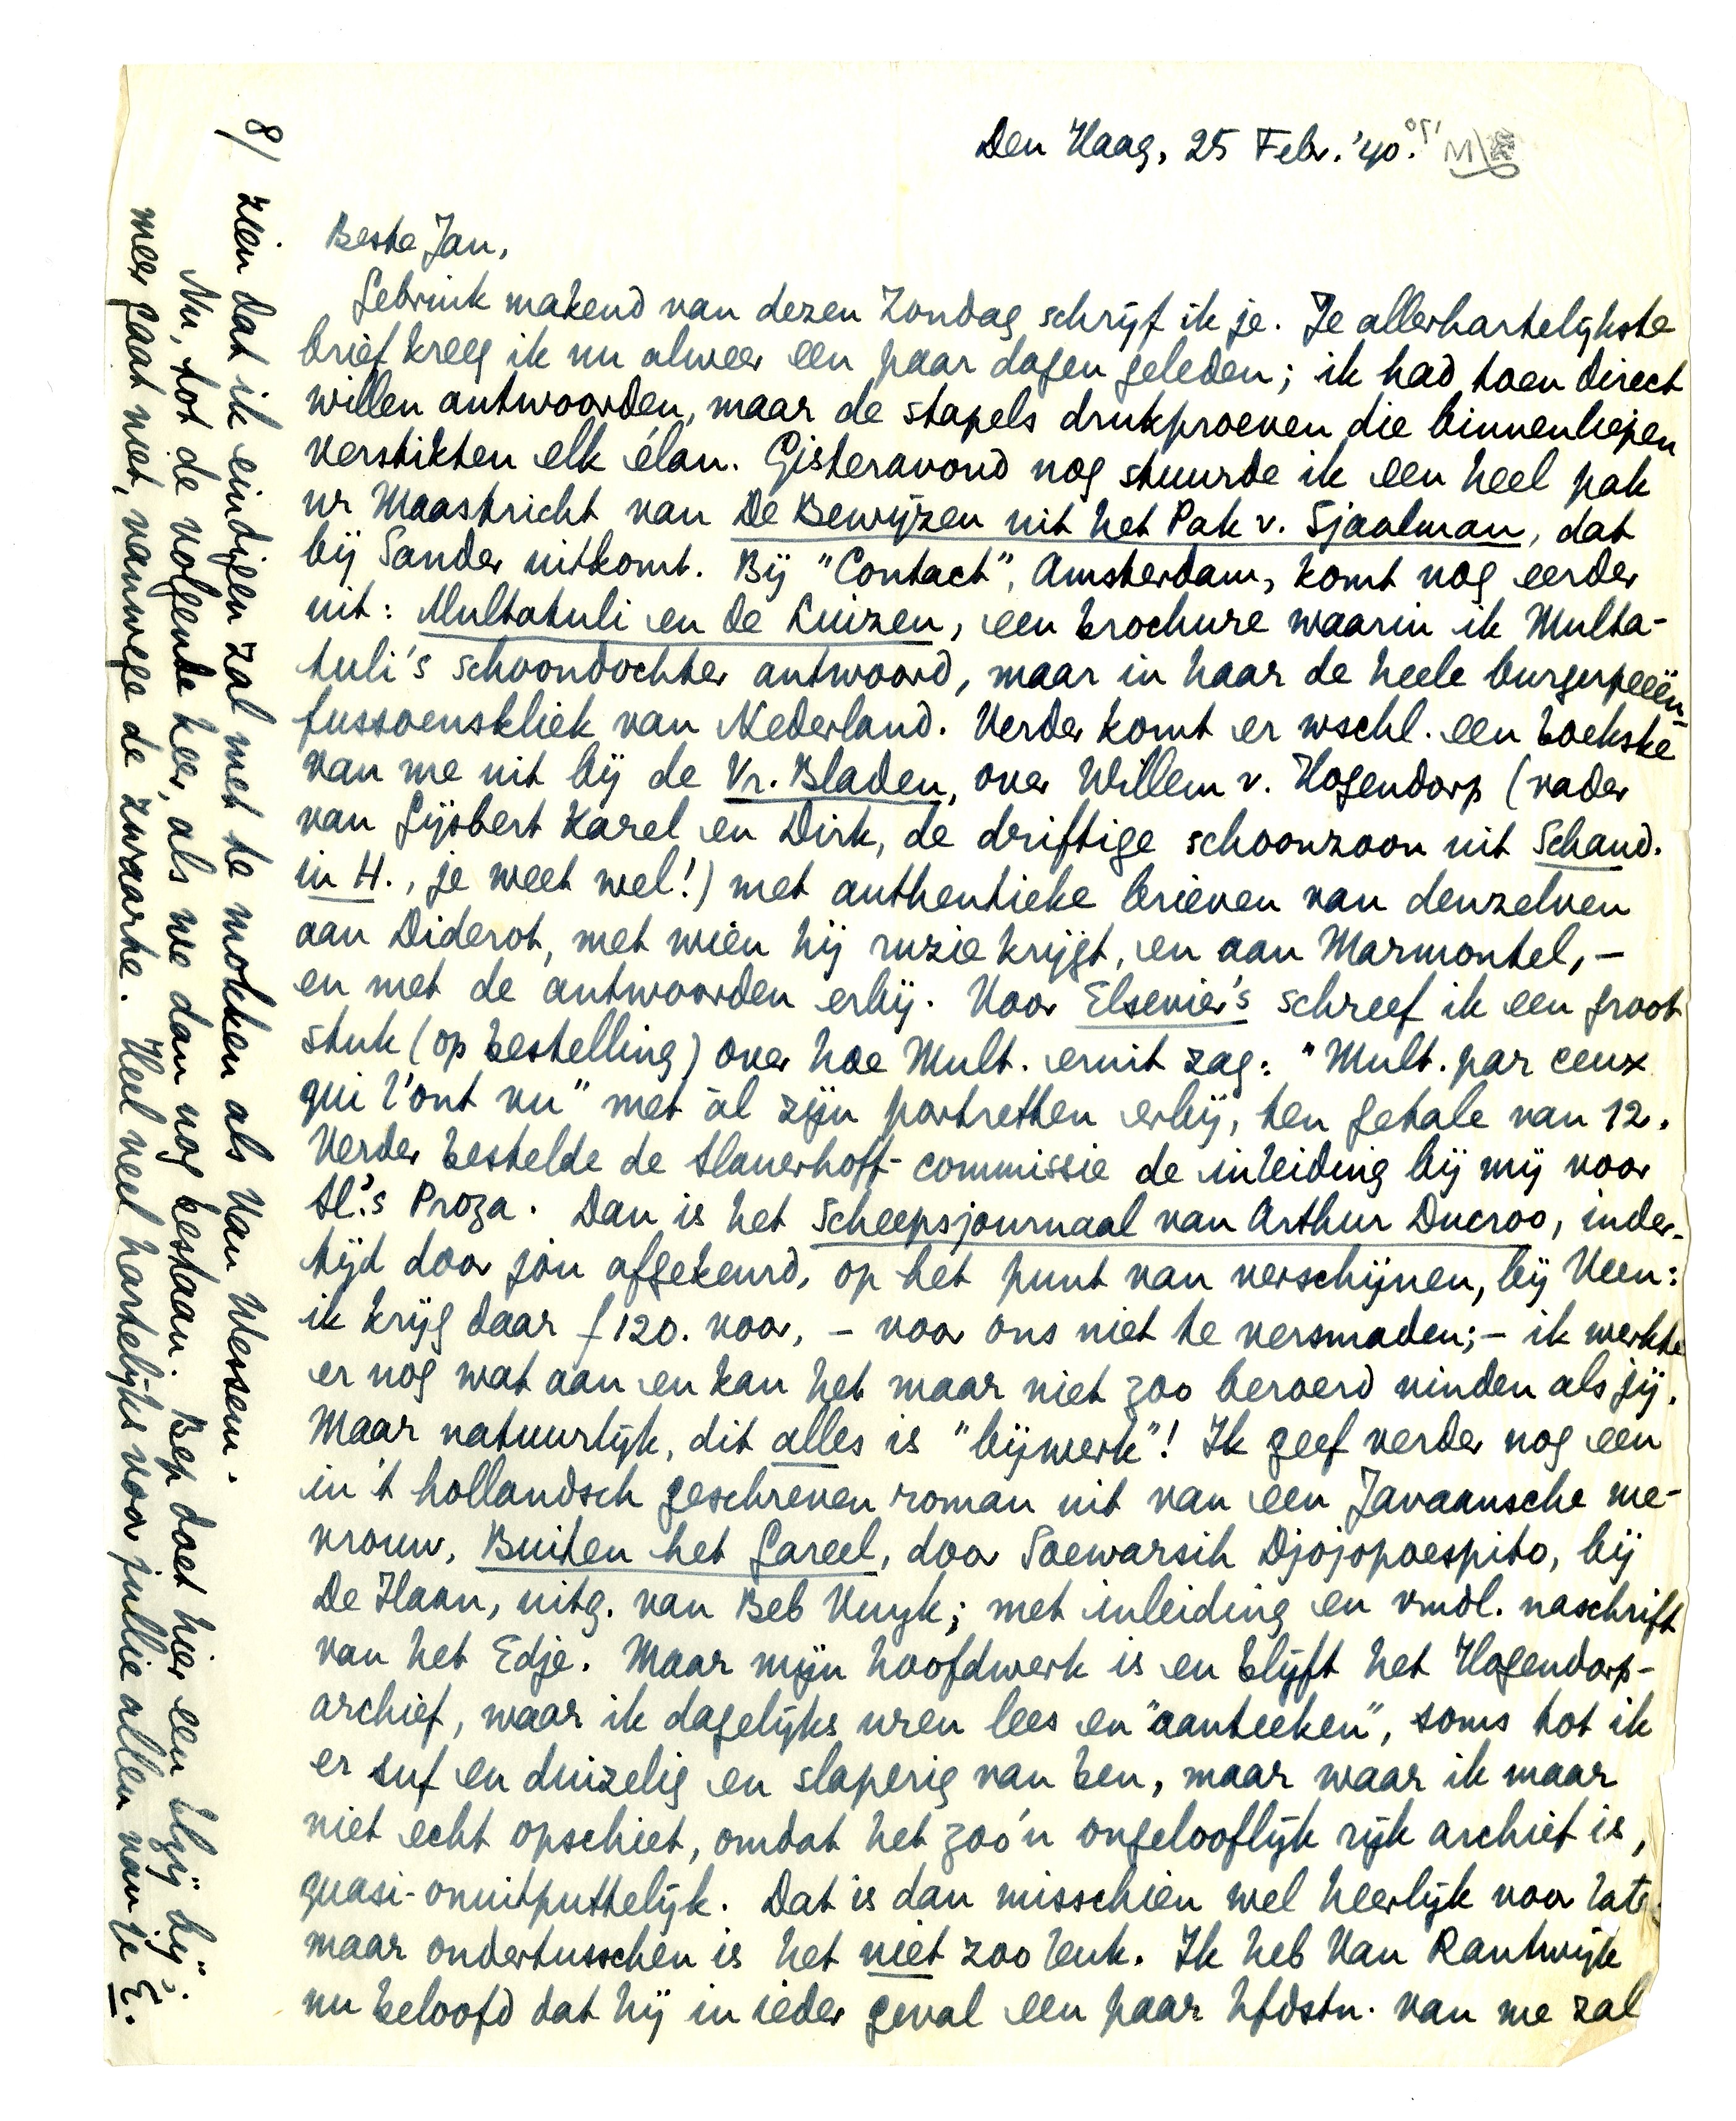 Den Haag, 25 Febr. '40.
Beste Jan,
Gebruik makend van dezen Zondag schrijf ik je. Je allerhartelijkste
brief kreeg ik nu alweer een paar dagen geleden; ik had toen direct
willen antwoorden, maar de stapels drukproeven die binnenliepen
verstikten elk élan. Gisteravond nog stuurde ik een heel pak
nr Maastricht van De Bewijzen uit het Pak v. Sjaalman, dat
bij Sander uitkomt. Bij "Contact", Amsterdam, komt nog eerder
uit: Multatuli en de Luizen, een brochure waarin ik Multa-
tuli's schoondochter antwoord, maar in haar de heele burgerpeeën-
fussoenskliek van Nederland. Verder komt er wschl. een boekske
van me uit bij de Vr. Bladen, over Willem v. Hogendorp (vader
van Gijsbert Karel en Dirk, de driftige schoonzoon uit Schand.
in H., je weet wel!) met authentieke brieven van denzelven
aan Diderot, met wien hij ruzie krijgt, en aan Marmontel, –
en met de antwoorden erbij. Voor Elsevier's schreef ik een groot
stuk (op bestelling) over hoe Mult. eruit zag: "Mult. par ceux
qui l'ont vu" met ál zijn portretten erbij, ten getale van 12.
Verder bestelde de Slauerhoff-commissie de inleiding bij mij voor
Sl.'s Proza. Dan is het Scheepsjournaal van Arthur Ducroo, inder-
tijd door jou afgekeurd, op het punt van verschijnen, bij Veen:
ik krijg daar f 120. voor, – voor ons niet te versmaden; – ik werkte
er nog wat aan en kan het maar niet zoo beroerd vinden als jij.
Maar natuurlijk, dit alles is "bijwerk"! Ik geef verder nog een
in 't hollandsch geschreven roman uit van een Javaansche me-
vrouw, Buiten het Gareel, door Soewarsih Djojopoespito, bij
De Haan, uitg. van Beb Vuyk; met inleiding en vmdl. naschrift
van het Edje. Maar mijn hoofdwerk is en blijft het Hogendorp-
archief, waar ik dagelijks uren lees en "aanteeken", soms tot ik
er suf en duizelig en slaperig van ben, maar waar ik maar
niet echt opschiet, omdat het zoo'n ongelooflijk rijk archief is,
quasi-onuitputtelijk. Dat is dan misschien wel heerlijk voor later
maar ondertusschen is het niet zoo leuk. Ik heb Van Rantwijk
nu beloofd dat hij in ieder geval een paar hfdstn. van me zal
8/ zien dat ik eindigen zal met te mokken als Van Wessem.
Nu, tot de volgende keer, als we dan nog bestaan. Bep doet hier een blij "bij".
meer gaat niet, vanwege de zwaarte. Heel veel hartelijks voor jullie allen van je E.